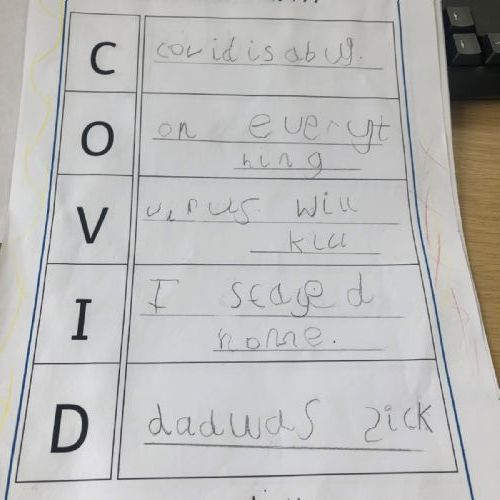 C covid is a bug.
O on everyt
hing
V virus will
kill
I I stayed
home.
D dad was sick